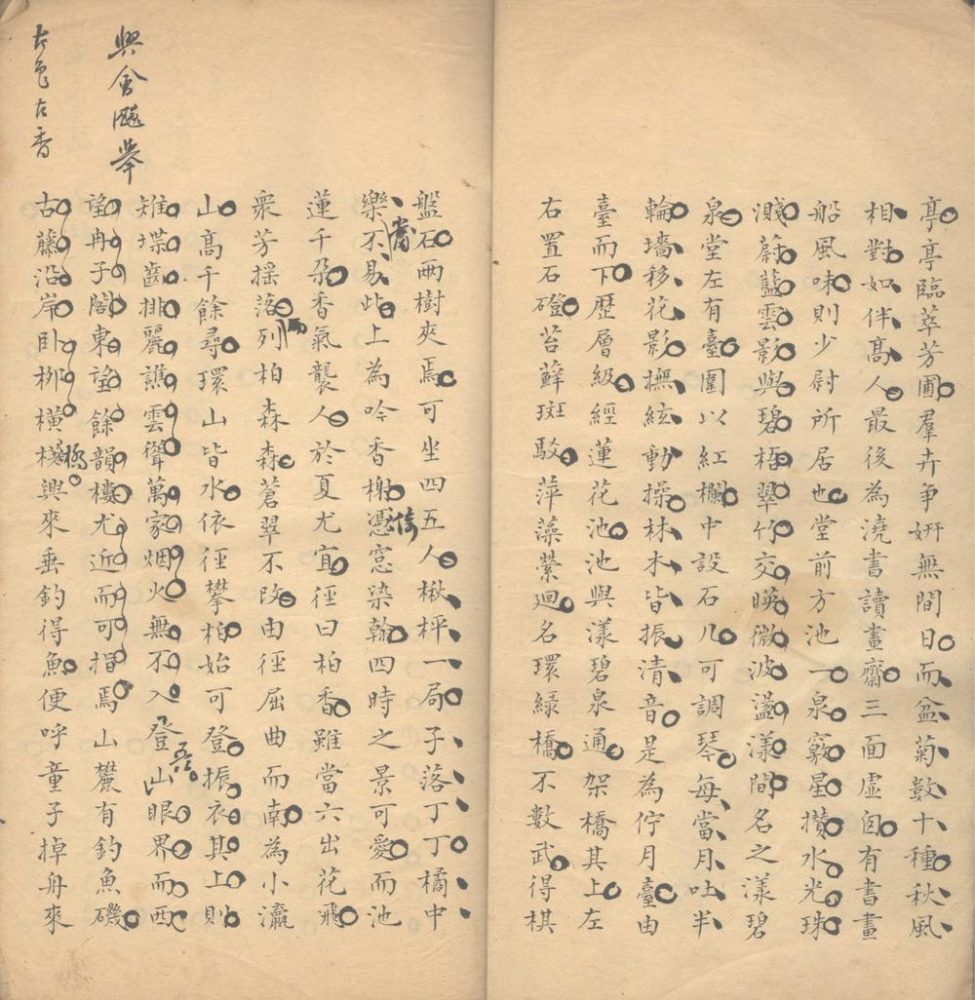 亭亭臨萃芳圃羣卉爭妍無間日而盆菊數十種秋風
相對如伴高人最後為澆書讀畫齋三面虛囱有書畫
船風味則少尉所居也堂前方池一泉竅星攢水光珠
濺蔚藍雲影與碧梧翠竹交暎微波盪漾間名之漾碧
泉堂左有臺圍以紅欄中設石几可調琴每當月吐半
輪墻移花影撫絃動操林木皆振清音是為佇月臺由
臺而下歷層級經蓮花池池與漾碧泉通架橋其上左
右置石磴苔蘚斑駁萍藻縈迴名環綠橋不數武得棋
盤石兩樹夾焉可坐四五人楸枰一局子落丁丁橘中
樂不易此上為吟香榭憑窓染翰四時之景可愛而池
當
倚
蓮千朶香氣襲人於夏尤宜徑曰柏香雖當六出花飛
衆芳搖落列柏森森蒼翠不改由徑屈曲而南為小瀛
山高千餘尋環山皆水依徑攀柏始可登振衣其上則
雉堞齒排麗譙雲聳萬家烟火無不入登山眼界而西
吾
望冉子閣東望餘韻樓尤近而可指焉山麓有釣魚磯
古藤沿岸卧柳橫橋興來垂釣得魚便呼童子掉舟來
興會飈舉
古色古香